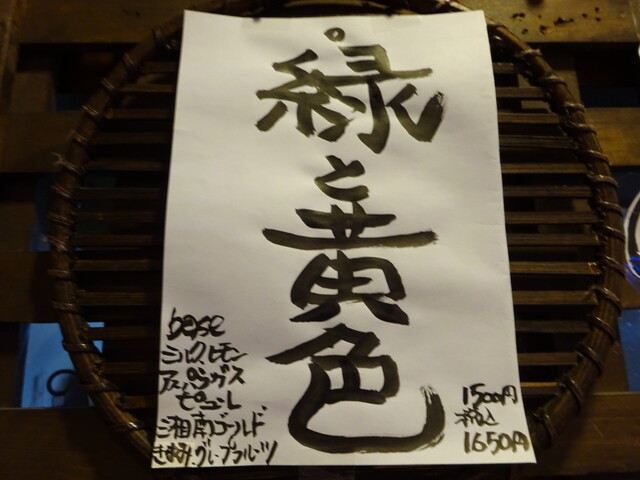 緑と黄色
base
ミルクレモン
アスパラガス
ピューレ
湘南ゴールド
きよみ、グレープフルーツ
1500円
税込
1650円